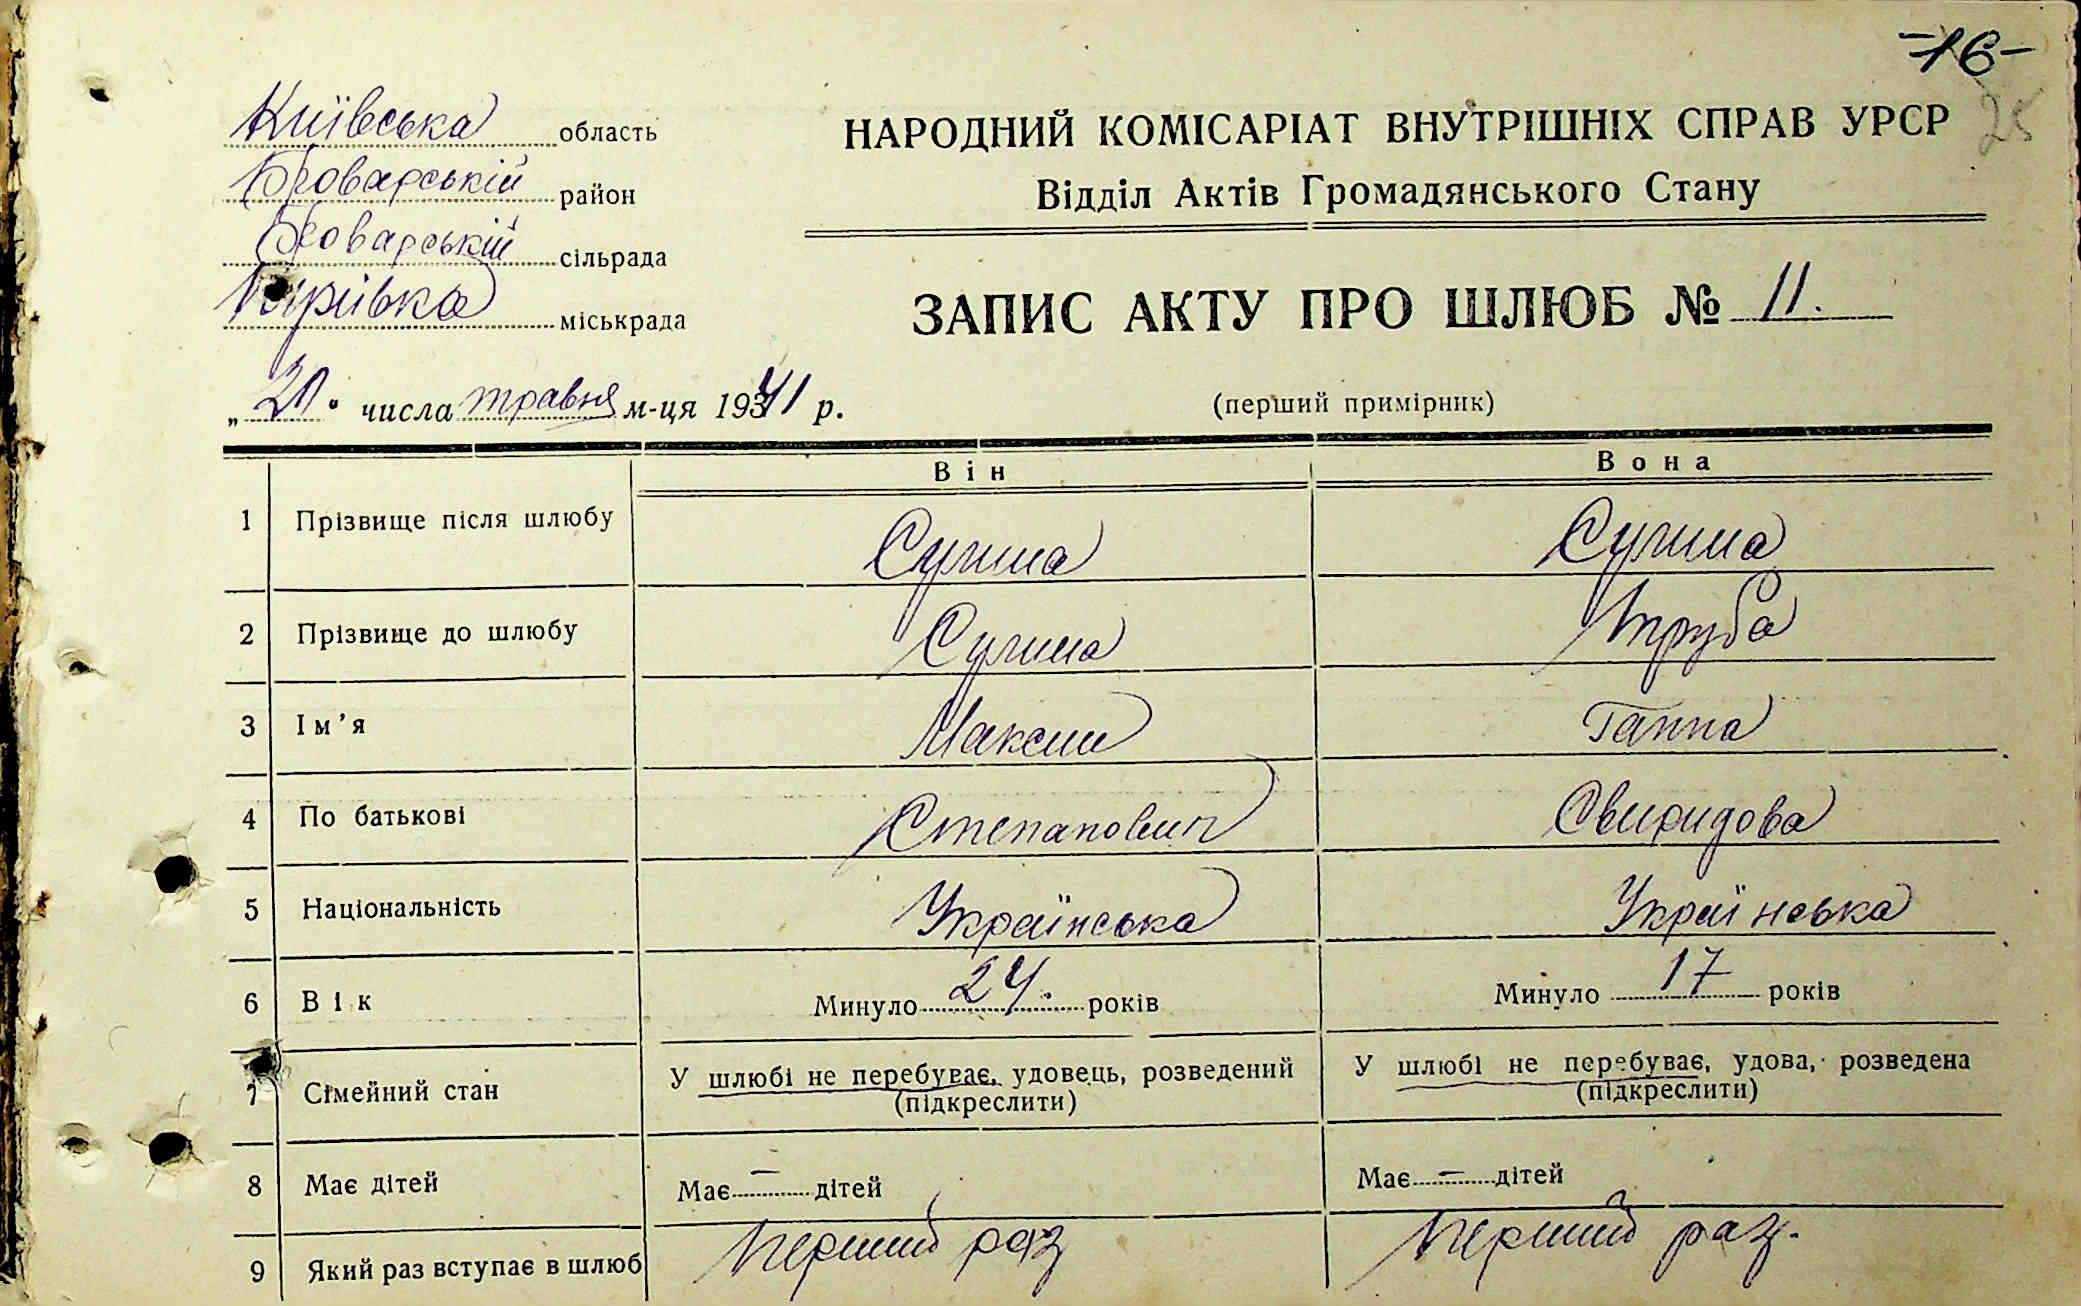 -16-
25
Київська область
НАРОДНИЙ КОМІСАРІАТ ВНУТРІШНІХ СПРАВ УРСР
Броварській район
Відділ Актів Громадянського Стану
Броварській сільрада
міськрада
ЗАПИС АКТУ ПРО ШЛЮБ № 11.
„20" числа травня м-ця 1941 р.
(перший примірник)
Він Вона
1 Прізвище після шлюбу Сулима Сулима
2 Прізвище до шлюбу Сулима Труба
3 Ім'я Максим Ганна
4 По батькові Степанович Свиридова
5 Національність Українська Українська
6 Вік Минуло 24. років Минуло 17 років
7 Сімейний стан У шлюбі не перебуває, удовець, розведений У шлюбі не перебуває, удова, розведена
(підкреслити) (підкреслити)
8 Має дітей Має — дітей Має — дітей
9 Який раз вступає в шлюб Перший раз Перший раз.